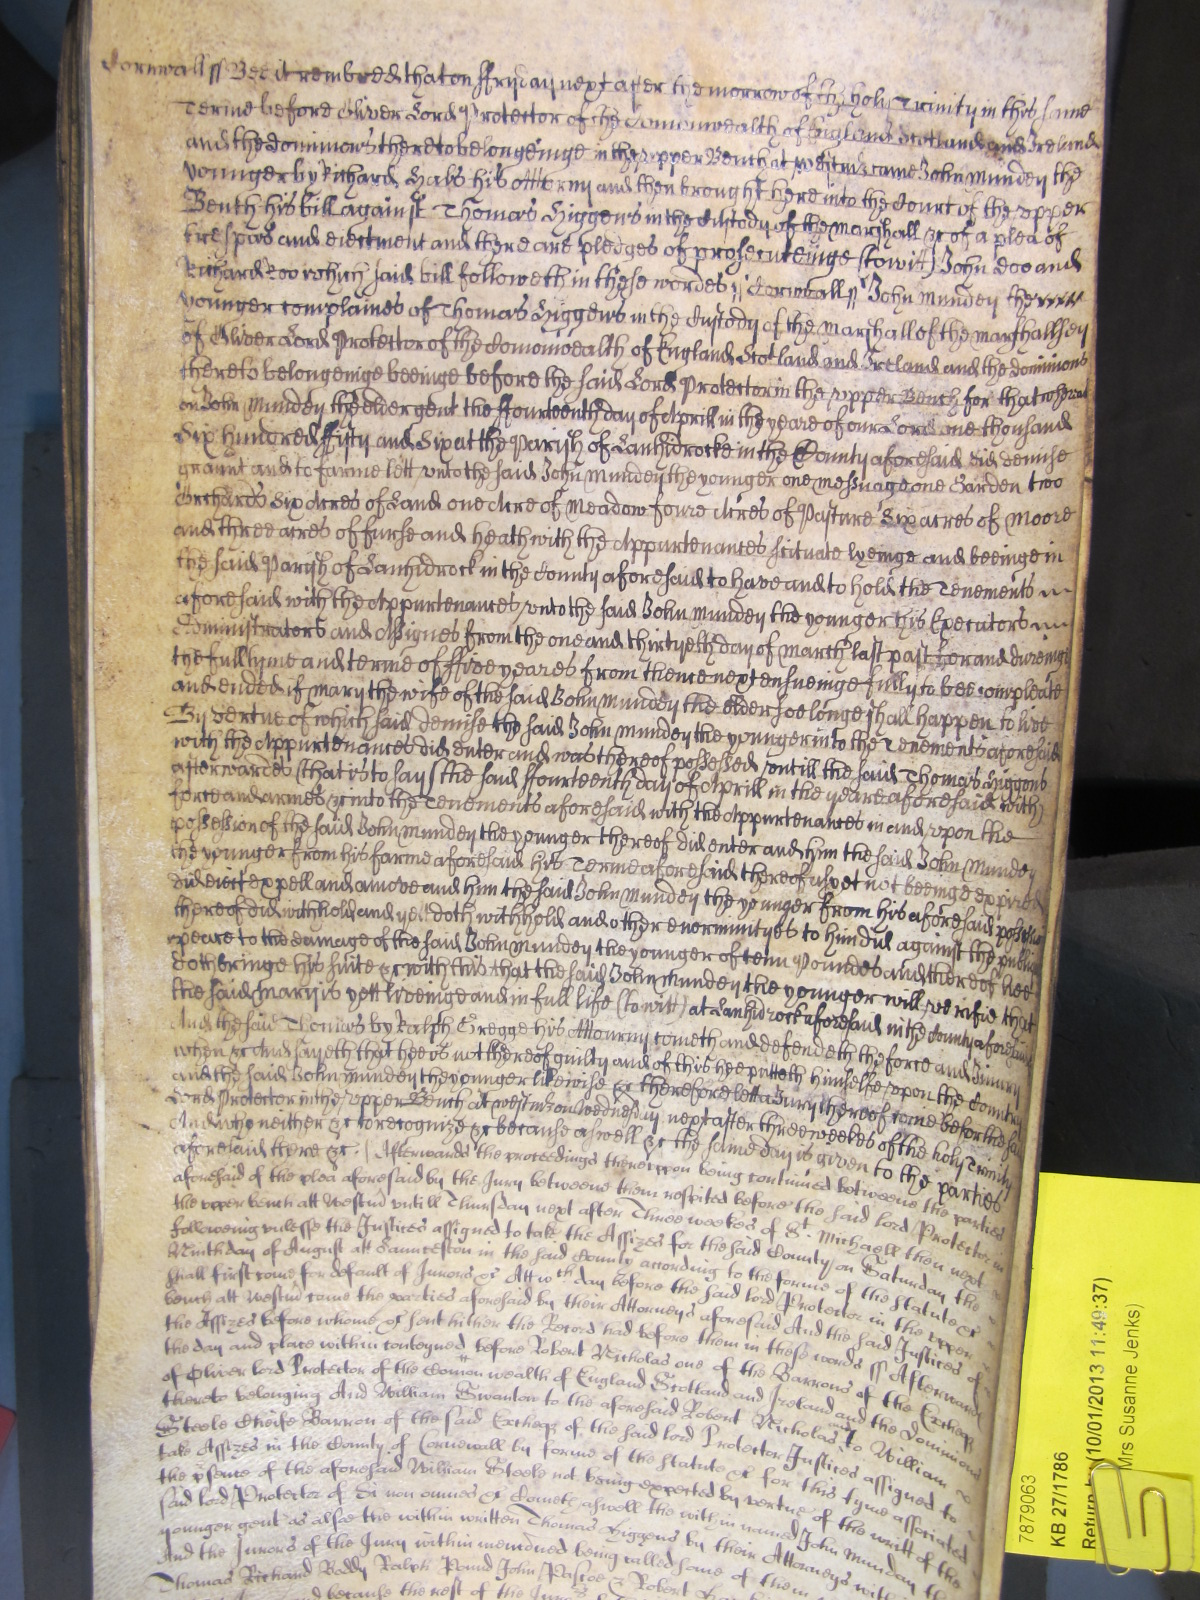 Cornwall ss Bee it remembred that on ffryday next after the morrow of the holy Trinity in this same
Terme before Oliver Lord Protector of the Comonwealth of England Scotland and Ireland
and the dominions thereto belongeinge in the upper Bench at Westmr came John Munday the
younger by Richard Habs his Attorny and then brought here into the Court of the upper
Bench his bill against Thomas Higgens in the Custody of the Marshall &c of a plea of
trespas and eiectment and there are pledges of prosecuteinge (to wit) John doo and
Richard Roo which said bill followeth in these wordes ss Cornwall ss John Munday the
younger complaines of Thomas Higgens in the Custody of the Marshall of the Marshallsey
of Oliver Lord Protector of the Comonwealth of England Scotland and Ireland and the dominions
thereto belongeinge beeinge before the said Lord Protector in the upper Bench for that whereas
on John Munday the elder gent the ffourteenth day of Aprill in the yeare of our Lord one thousand
Six hundred ffifty and Six at the Parish of Lanhidrocke in the County aforesaid did demise
graunt and to farme lett unto the said John Munday the younger one messuage one Garden two
Orchards Six Acres of Land one Acre of Meadow foure Acres of Pasture Six acres of Moore
and three acres of furse and heath with the Appurtenances scituate lyeinge and beeinge in
the said Parish of Lanhidrock in the County aforesaid to have and to hold the Tenements
aforesaid with the Appurtenances unto the said John Munday the younger his Executors
Administrators and Assignes from the one and thirtyeth day of March last past for and dureinge
the full tyme and terme of ffive yeares from thence next ensueinge fully to bee compleate
and ended if Mary the wife of the said John Munday the elder soe longe shall happen to live
By vertue of which said demise the said John Munday the younger into the Tenements aforesaid
with the Appurtenances did enter and was thereof possessed untill the said Thomas Higgens
afterwardes (that is to say) the said ffourteenth day of Aprill in the yeare aforesaid with
force and armes &c into the Tenements aforesaid with the Appurtenances in and upon the
possession of the said John Munday the younger thereof did enter and him the said John Munday
the younger from his farme aforesaid his Terme aforesaid thereof as yet not beeinge expired
did eiect expell and amove and him the said John Munday the younger from his aforesaid possession
thereof did withhold and yett doth withhold and other enormityes to him did against the publique
peace to the damage of the said John Munday the younger of tenn Poundes and thereof hee
doth bringe his suite &c with this that the said John Munday the younger will verifie that
the said Mary is yett liveinge and in full life (to witt) at Lanhidrock aforesaid in the County aforesaid
And the said Thomas by Ralph Gregge his Attourny cometh and defendeth the force and Iniury
when &c And sayeth that hee is not thereof guilty and of this hee putteth himselfe upon the Country
and the said John Munday the younger likewise &c therefore lett a Jury thereof come before the said
Lord Protector in the upper Bench at Westmr on Wednesday next after three weekes of the holy Trinity
And who neither &c to recognize &c because aswell &c the same day is given to the parties
aforesaid there &c. Afterwards the proceedings thereupon being continued betweene the parties
aforesaid of the plea aforesaid by the Jury betweene them respited before the said lord Protector in
the upper bench att Westmr untill Thursday next after Three weekes of St. Michaell then next
following unlesse the Justices assigned to take the Assizes for the said County on Saturday the
Ninth day of August att Launceston in the said County according to the forme of the Statute &c
shall first come for default of Jurors &c Att wch day before the said lord Protector in the upper
bench att Westmr come the parties aforesaid by their Attorneys aforesaid And the said Justices of
the Assizes before whome &c sent hither the Record had before them in these words ss Afterwards
the day and place within conteyned before Robert Nicholas one of the Barrons of the Excheqr
of Oliver lord Protector of the Comon wealth of England Scotland and Ireland and the Dominions
thereto belonging And William Swanton to the aforesaid Robert Nicholas and to William
Steele Cheife Barron of the said Excheqr of the said lord Protector Justices assigned to
take Assizes in the County of Cornewall by forme of the Statute &c for this tyme associated
the psence of the aforesaid William Steele not being expected by vertue of the writt of the
said lord Protector of Si non omnes &c Cometh aswell the within named John Munday the
younger gent as alsoe the within written Thomas Higgens by their Attorneys within
And the Jurors of the Jury within menconed being called some of them
Thomas Richard Baddy Ralph Pound John Pascoe & Robert
and because the rest of the Jurors
7879063
KB 27/1786
Return by (10/01/2013 11:49:37)
Mrs Susanne Jenks)